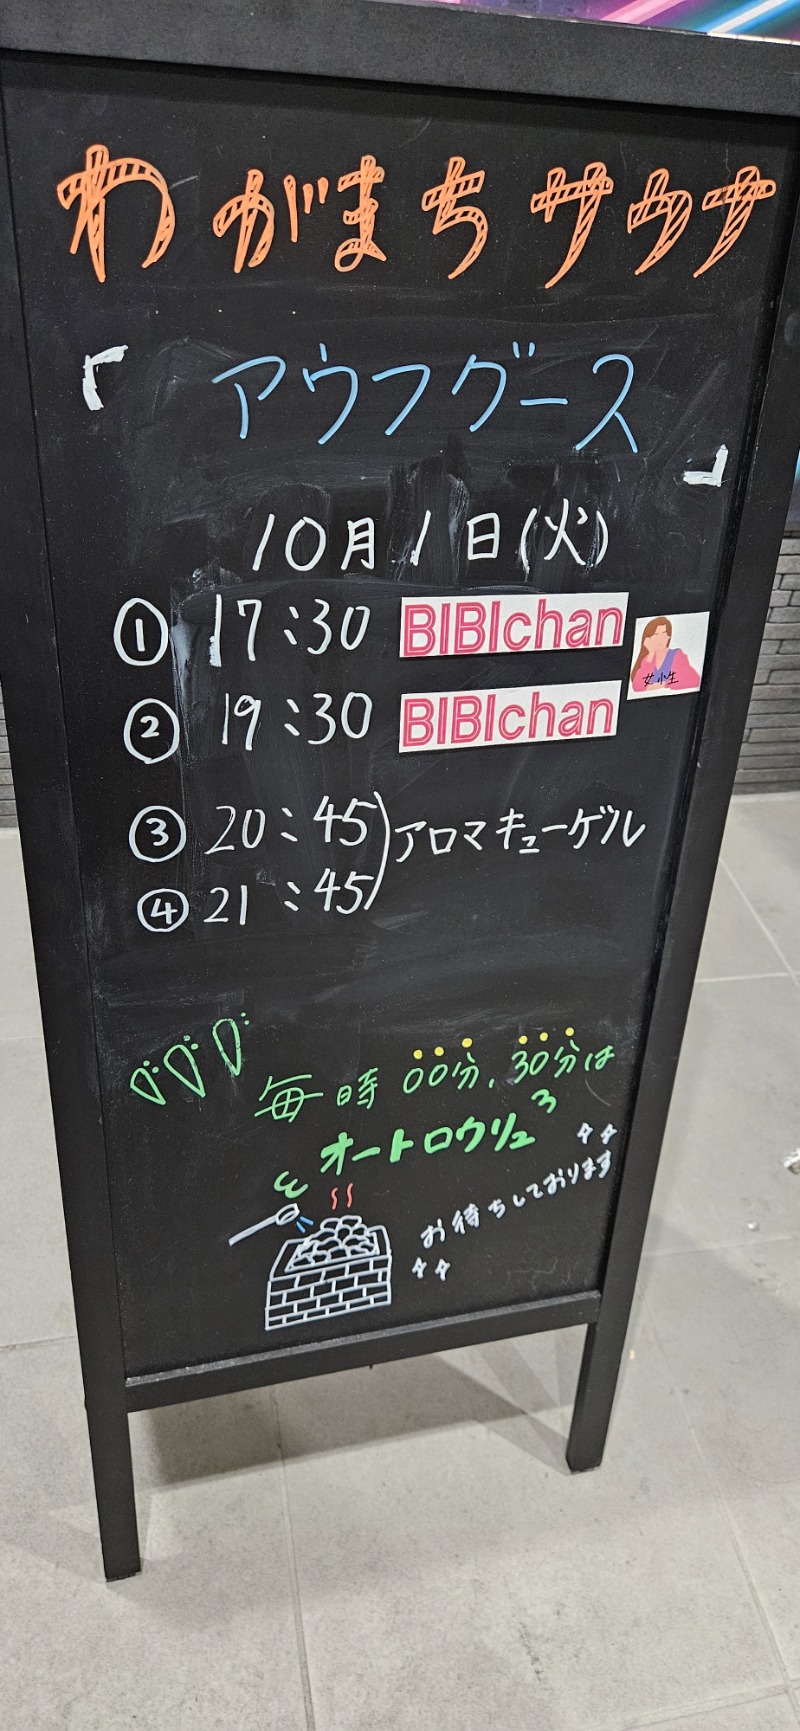 わがまちサウナ
「アウフグース」
10月1日(火)
① 17:30 BIBIchan
② 19:30 BIBIchan
③ 20:45
④ 21:45
アロマキューゲル
毎時 00分、30分は
オートロウリュ
お待ちしております